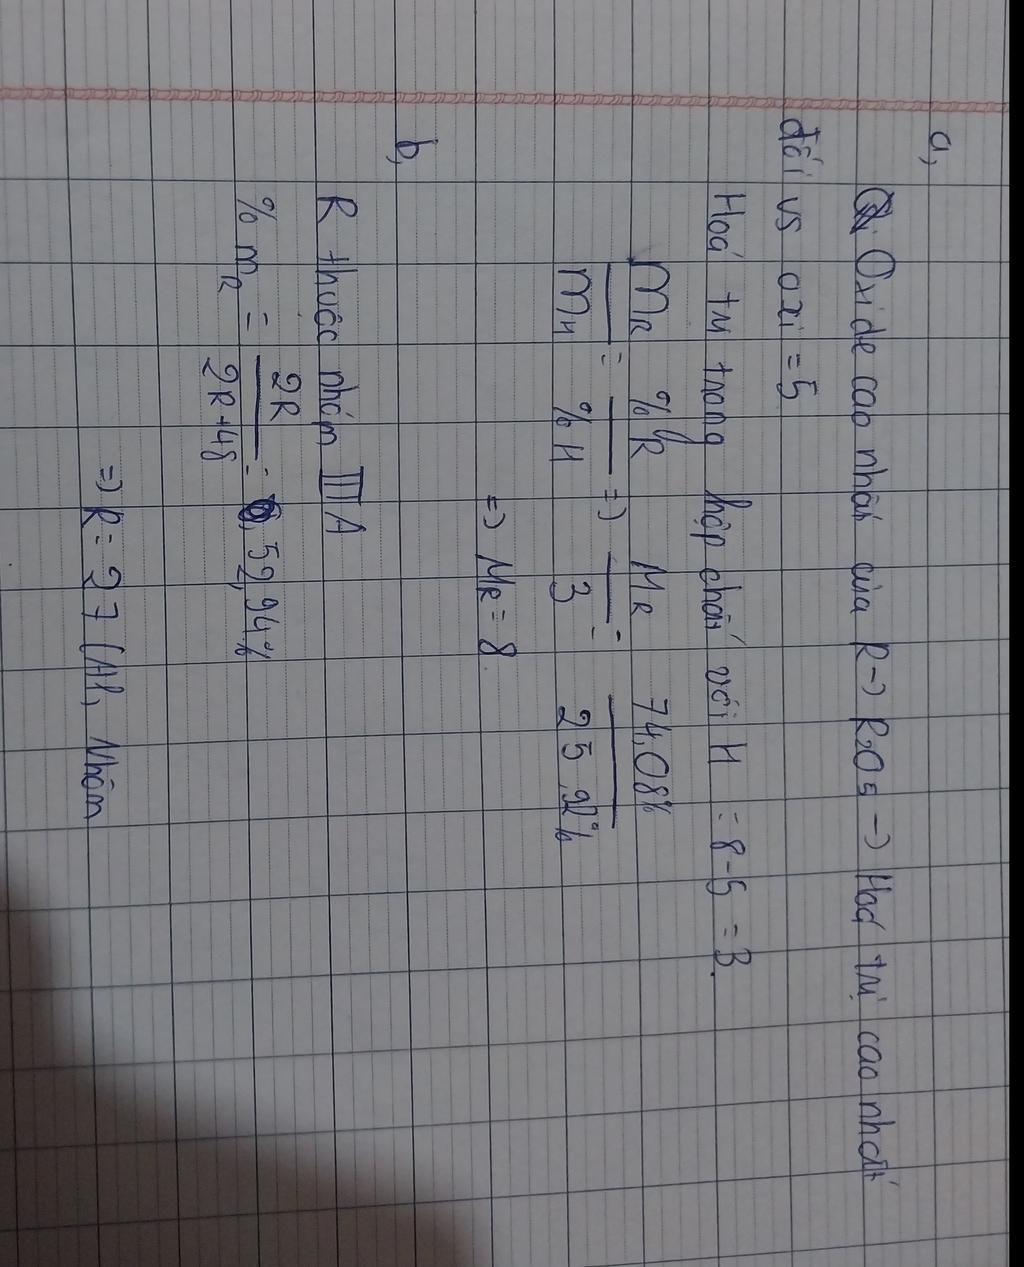 a,
Oxide cao nhất của R → R2O5 → Hoá trị cao nhất
đối vs oxi = 5
Hoá trị trong hợp chất với H = 8 - 5 = 3.
mR / mH = %R / %H => MR / 3 = 74,08% / 25,92%
=> MR = 8
b,
R thuộc nhóm IIIA
% mR = 2R / 2R + 48 = 52,94%
=> R = 27 (Al, Nhôm